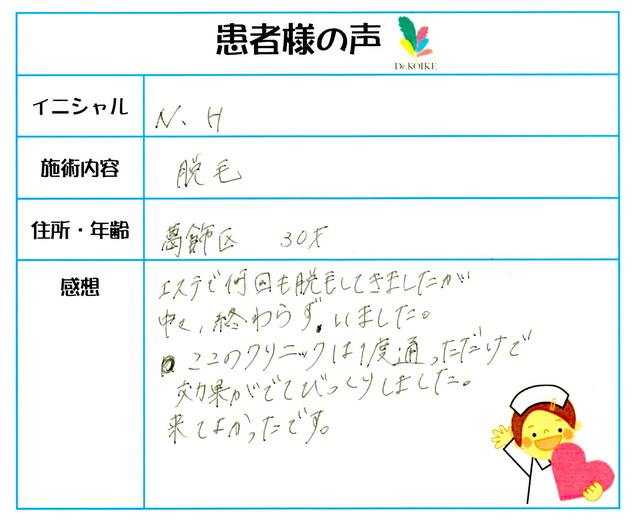 患者様の声
Dr.KOIKE
イニシャル
N、H
施術内容
脱毛
住所・年齢
葛飾区 30才
感想
エステで何回も脱毛してきましたが
中々、終わらず、いました。
ここのクリニックは1度通っただけで
効果がでてびっくりしました。
来てよかったです。